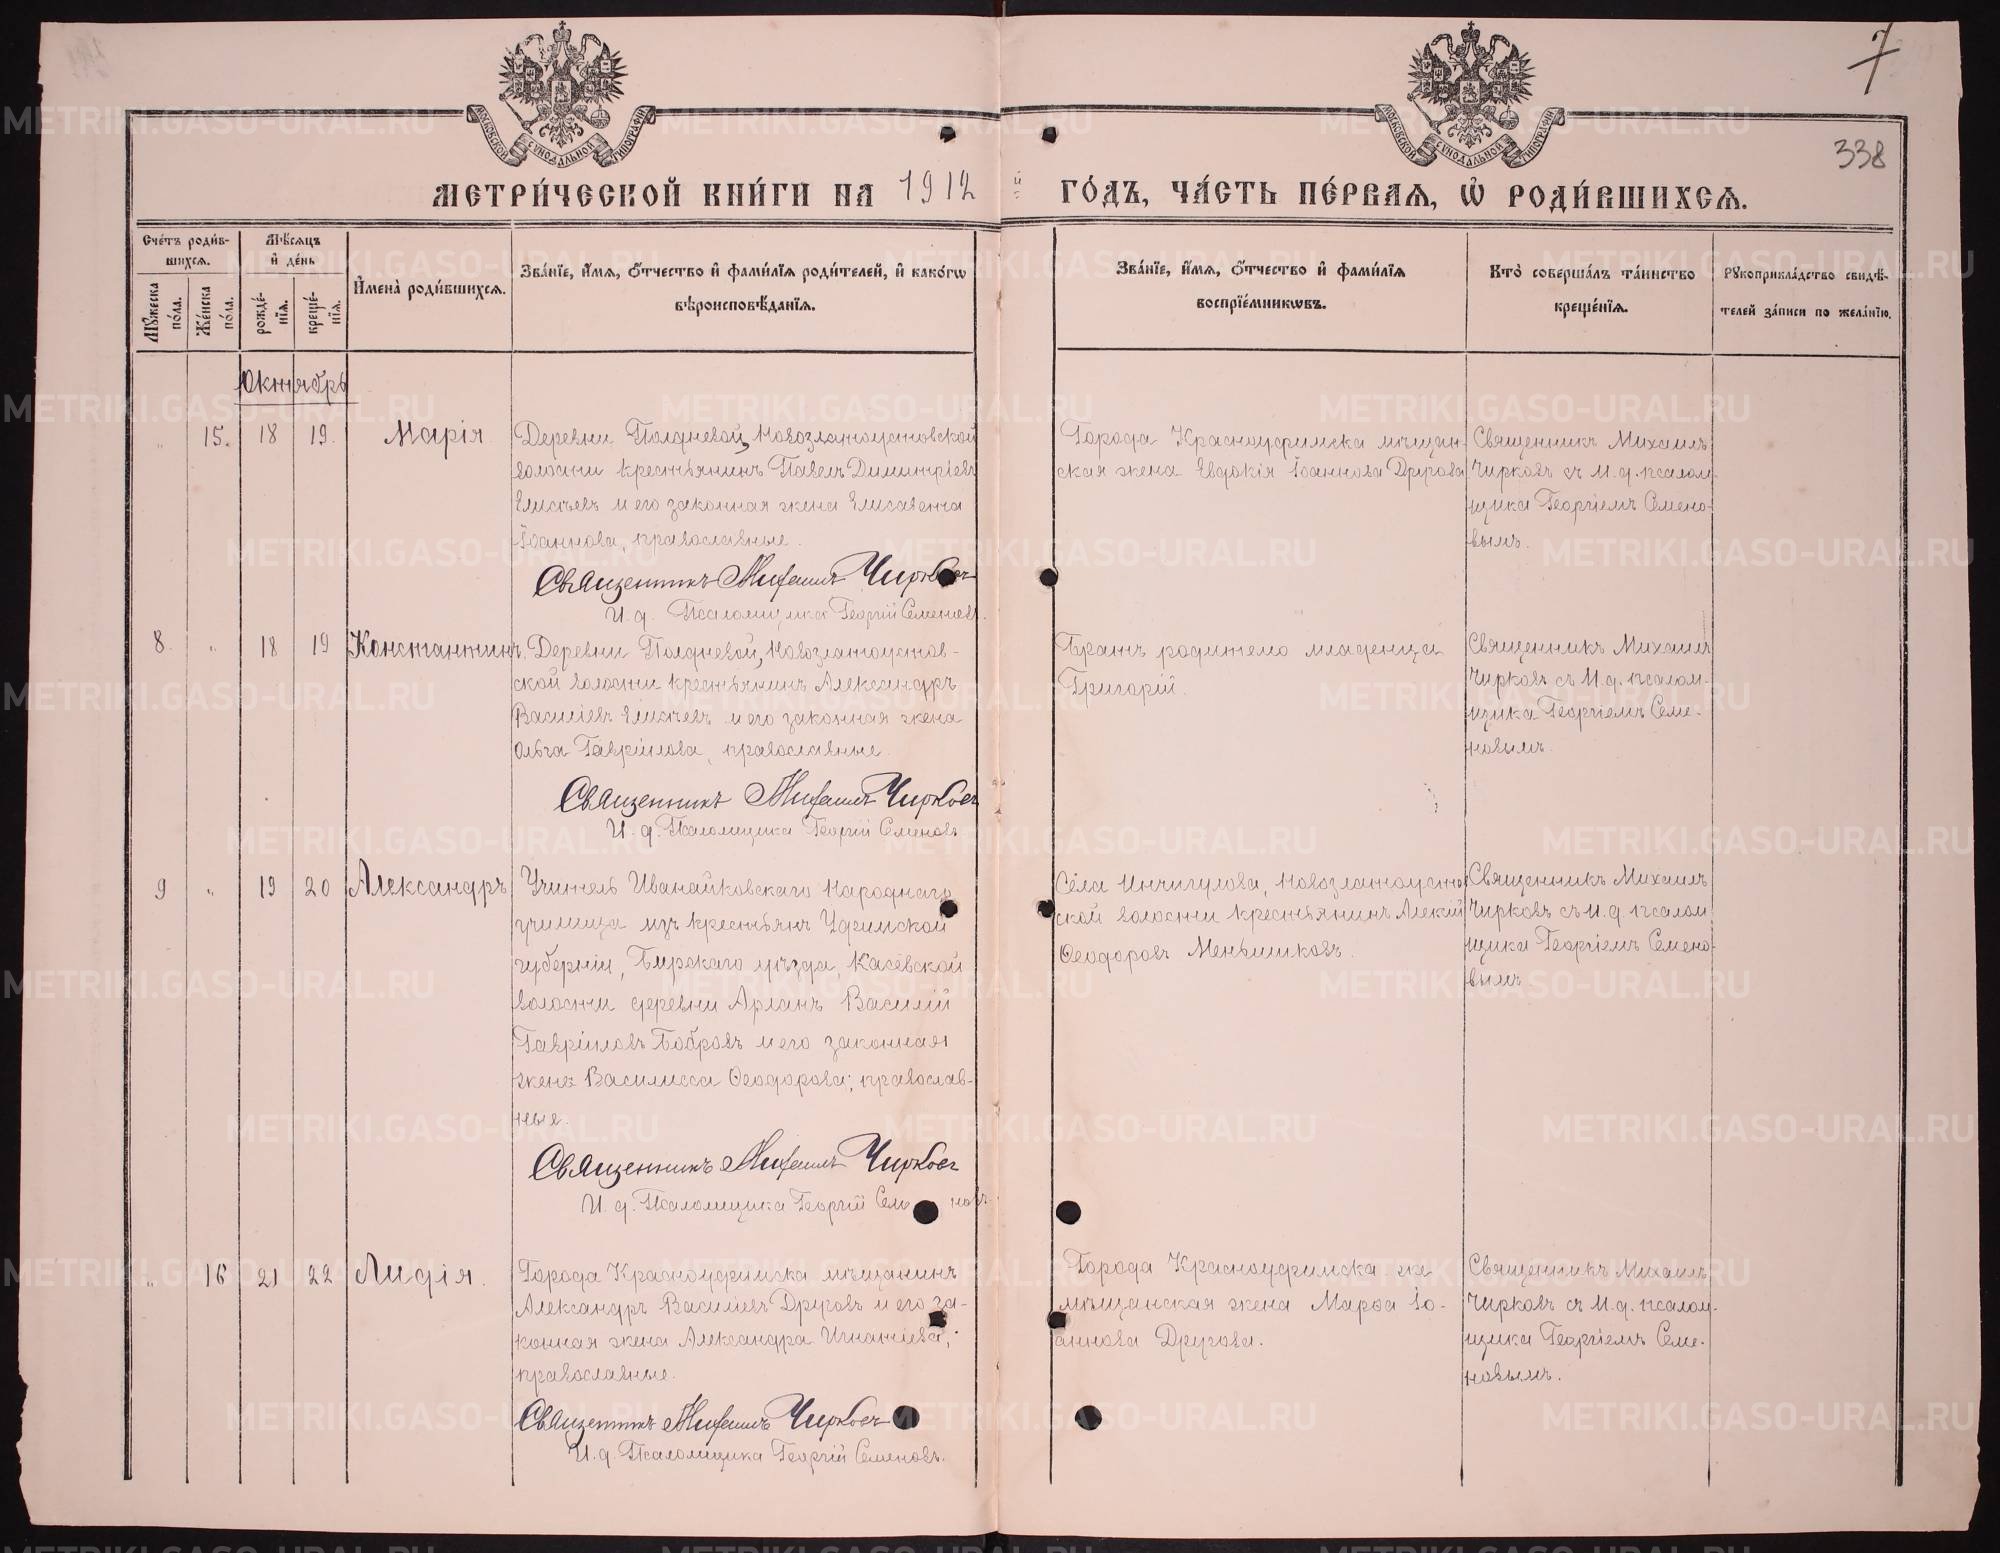 7
338
МОСКОВСКОЙ СѴНОДАЛЬНОЙ ТИПОГРАФІИ
МОСКОВСКОЙ СѴНОДАЛЬНОЙ ТИПОГРАФІИ
МЕТРИ́ЧЕСКОЙ КНИ́ГИ НА 1912 й ГО́ДЪ, ЧА́СТЬ ПЕ́РВАѦ, Ѡ҆ РОДИ́ВШИХСѦ.
Сче́тъ роди́в-
шихсѧ.
Мꙋ́жеска по́ла.
Же́нска по́ла.
Мѣ́сѧцъ
и҆ де́нь
рожде́-
нїѧ.
креще́-
нїѧ.
И҆мена̀ роди́вшихсѧ.
Зва́нїе, и҆́мѧ, ѻ҆́тчество и҆ фами́лїѧ роди́телей, и҆ како́гѡ
вѣроисповѣ́данїѧ.
Зва́нїе, и҆́мѧ, ѻ҆́тчество и҆ фами́лїѧ
воспрїе́мникѡвъ.
Кто̀ соверша́лъ та́инство
креще́нїѧ.
Рꙋкоприкла́дство свидѣ́-
телей за́писи по жела́нїю.
Октябрь
" 15. 18 19. Марія
Деревни Полдневой, Новозлатоустовской
волости крестьянинъ Павелъ Димитріевъ
Елисѣевъ и его законная жена Елисавета
Іоаннова, православные.
Священникъ Михаилъ Чирковъ
И. д. Псаломщика Георгій Семеновъ.
Города Красноуфимска мѣщан-
ская жена Евдокія Іоаннова Другова
Священникъ Михаилъ
Чирковъ съ И. д. псалом-
щика Георгіемъ Семено-
вымъ.
8. " 18 19 Константинъ.
Деревни Полдневой, Новозлатоустов-
ской волости крестьянинъ Александръ
Василіевъ Елисѣевъ и его законная жена
Ольга Гавріилова, православные.
Священникъ Михаилъ Чирковъ
И. д. Псаломщика Георгій Семеновъ
Братъ родителю младенца
Григорій.
Священникъ Михаилъ
Чирковъ съ И. д. псалом-
щика Георгіемъ Семе-
новымъ.
9 " 19 20 Александръ
Учитель Иванайковскаго Народнаго
училища изъ крестьянъ Уфимской
губерніи, Бирскаго уѣзда, Касевской
волости деревни Арланъ Василій
Гавріиловъ Бобровъ и его законная
жена Василисса Ѳеодорова; православ-
ные.
Священникъ Михаилъ Чирковъ
И. д. Псаломщика Георгій Семеновъ.
Села Инчигулова, Новозлатоустов-
ской волости крестьянинъ Алексій
Ѳеодоровъ Меньшиковъ.
Священникъ Михаилъ
Чирковъ съ И. д. псалом-
щика Георгіемъ Семено-
вымъ
" 16 21 22 Лидія.
Города Красноуфимска мѣщанинъ
Александръ Василіевъ Друговъ и его за-
конная жена Александра Игнатіева;
православные.
Священникъ Михаилъ Чирковъ
И. д. Псаломщика Георгій Семеновъ.
Города Красноуфимска же
мѣщанская жена Марѳа Іо-
аннова Другова.
Священникъ Михаилъ
Чирковъ съ И. д. псалом-
щика Георгіемъ Семе-
новымъ.
METRIKI.GASO-URAL.RU